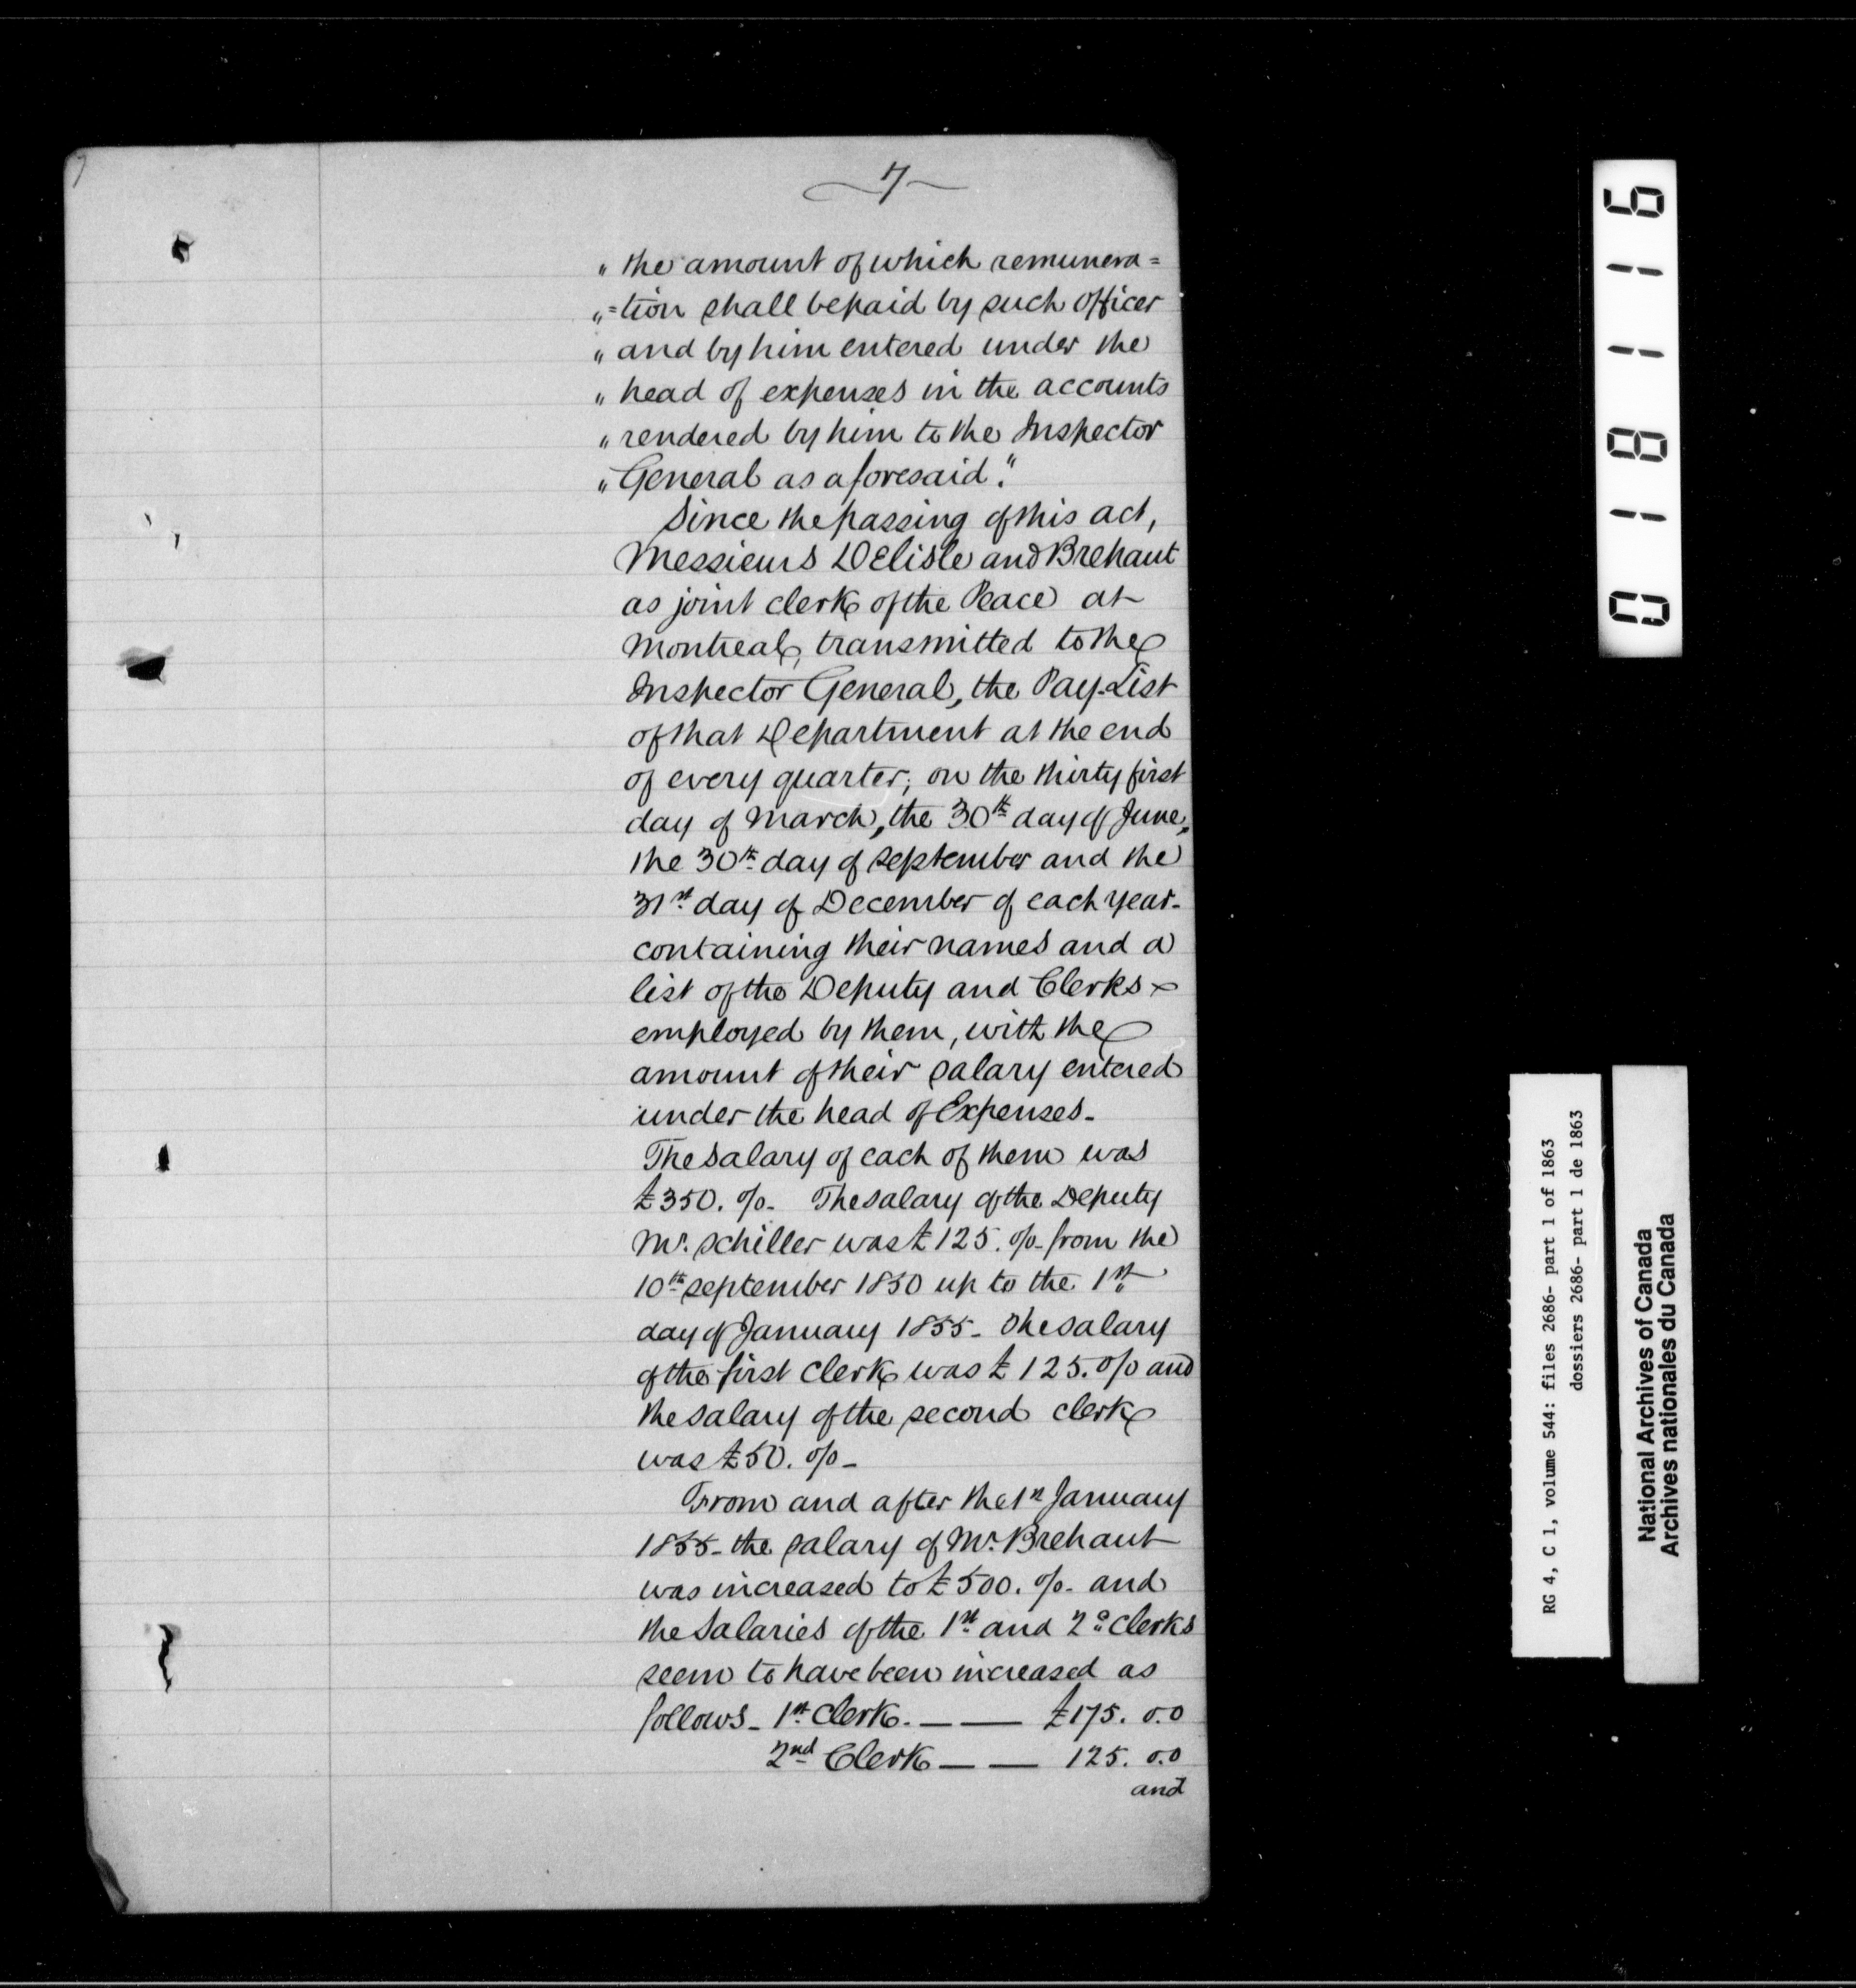 7
„ the amount of which remunera=
„ =tion shall be paid by such officer
„ and by him entered under the
„ head of expenses in the accounts
„ rendered by him to the Inspector
„ General as aforesaid."
Since the passing of this act,
Messieurs DElisle and Brehaut
as joint clerk of the Peace at
Montreal, transmitted to the
Inspector General, the Pay-List
of that Department at the end
of every quarter; on the thirty first
day of March, the 30th day of June,
the 30th day of September and the
31st day of December of each year-
containing their names and a
list of the Deputy and Clerks
employed by them, with the
amount of their salary entered
under the head of Expenses-
The salary of each of them was
£350. %- The salary of the Deputy
Mr. Schiller was £125. %- from the
10th September 1850 up to the 1st
day of January 1855- The salary
of the first Clerk was £125. %- and
the salary of the second clerk
was £50. %-
From and after the 1st January
1855- the salary of Mr. Brehaut
was increased to £500. %- and
the Salaries of the 1st and 2d Clerks
seem to have been increased as
follows- 1st Clerk. — — £175. 0.0
2nd Clerk — — 125. 0.0
and
011816
RG 4, C 1, volume 544: files 2686- part 1 of 1863
dossiers 2686- part 1 de 1863
National Archives of Canada
Archives nationales du Canada